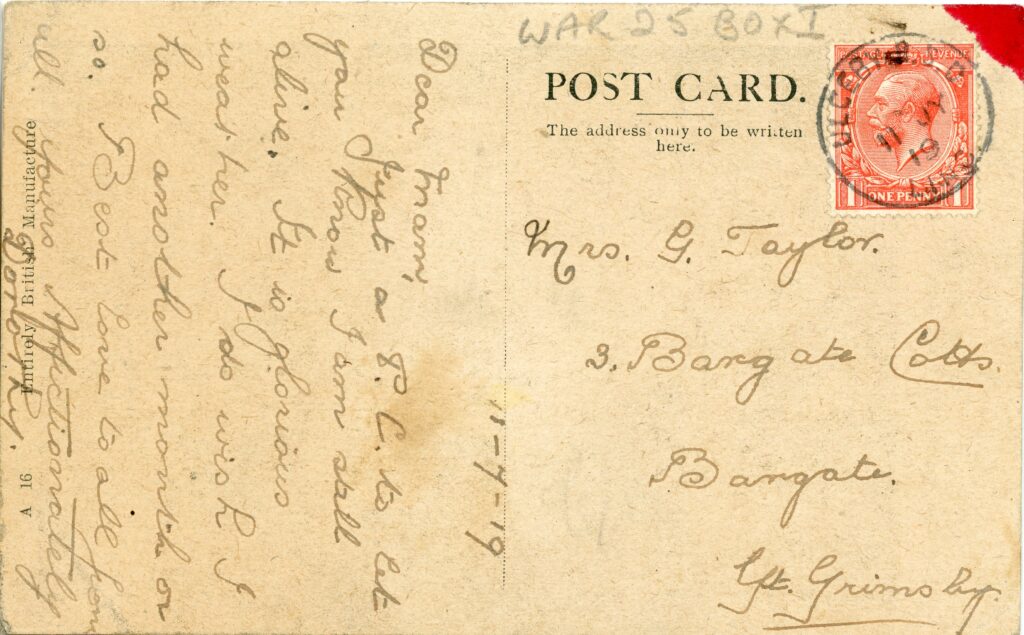 WAR 25 BOX I
POST CARD.
The address only to be written
here.
REVENUE
11 JY
19
1 ONE PENNY 1
Mrs. G. Taylor.
3. Bargate Cotts.
Bargate.
Gt. Grimsby.
11-7-19
Dear Mam,
Just a P.C. to let
you know I am still
alive. It is glorious
weather. I do wish I
had another month or
so. Best love to all from
all. Yours Affectionately
Dorothy.
A 16 Entirely British Manufacture